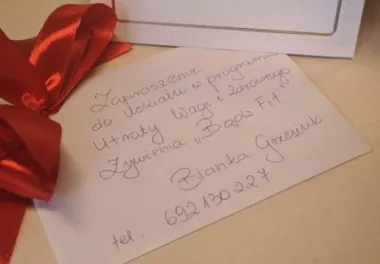 Zaproszenie
do udziału w programie
Utraty Wagi i Zdrowego
Żywienia „Bądź Fit"
Blanka
tel. 692130227